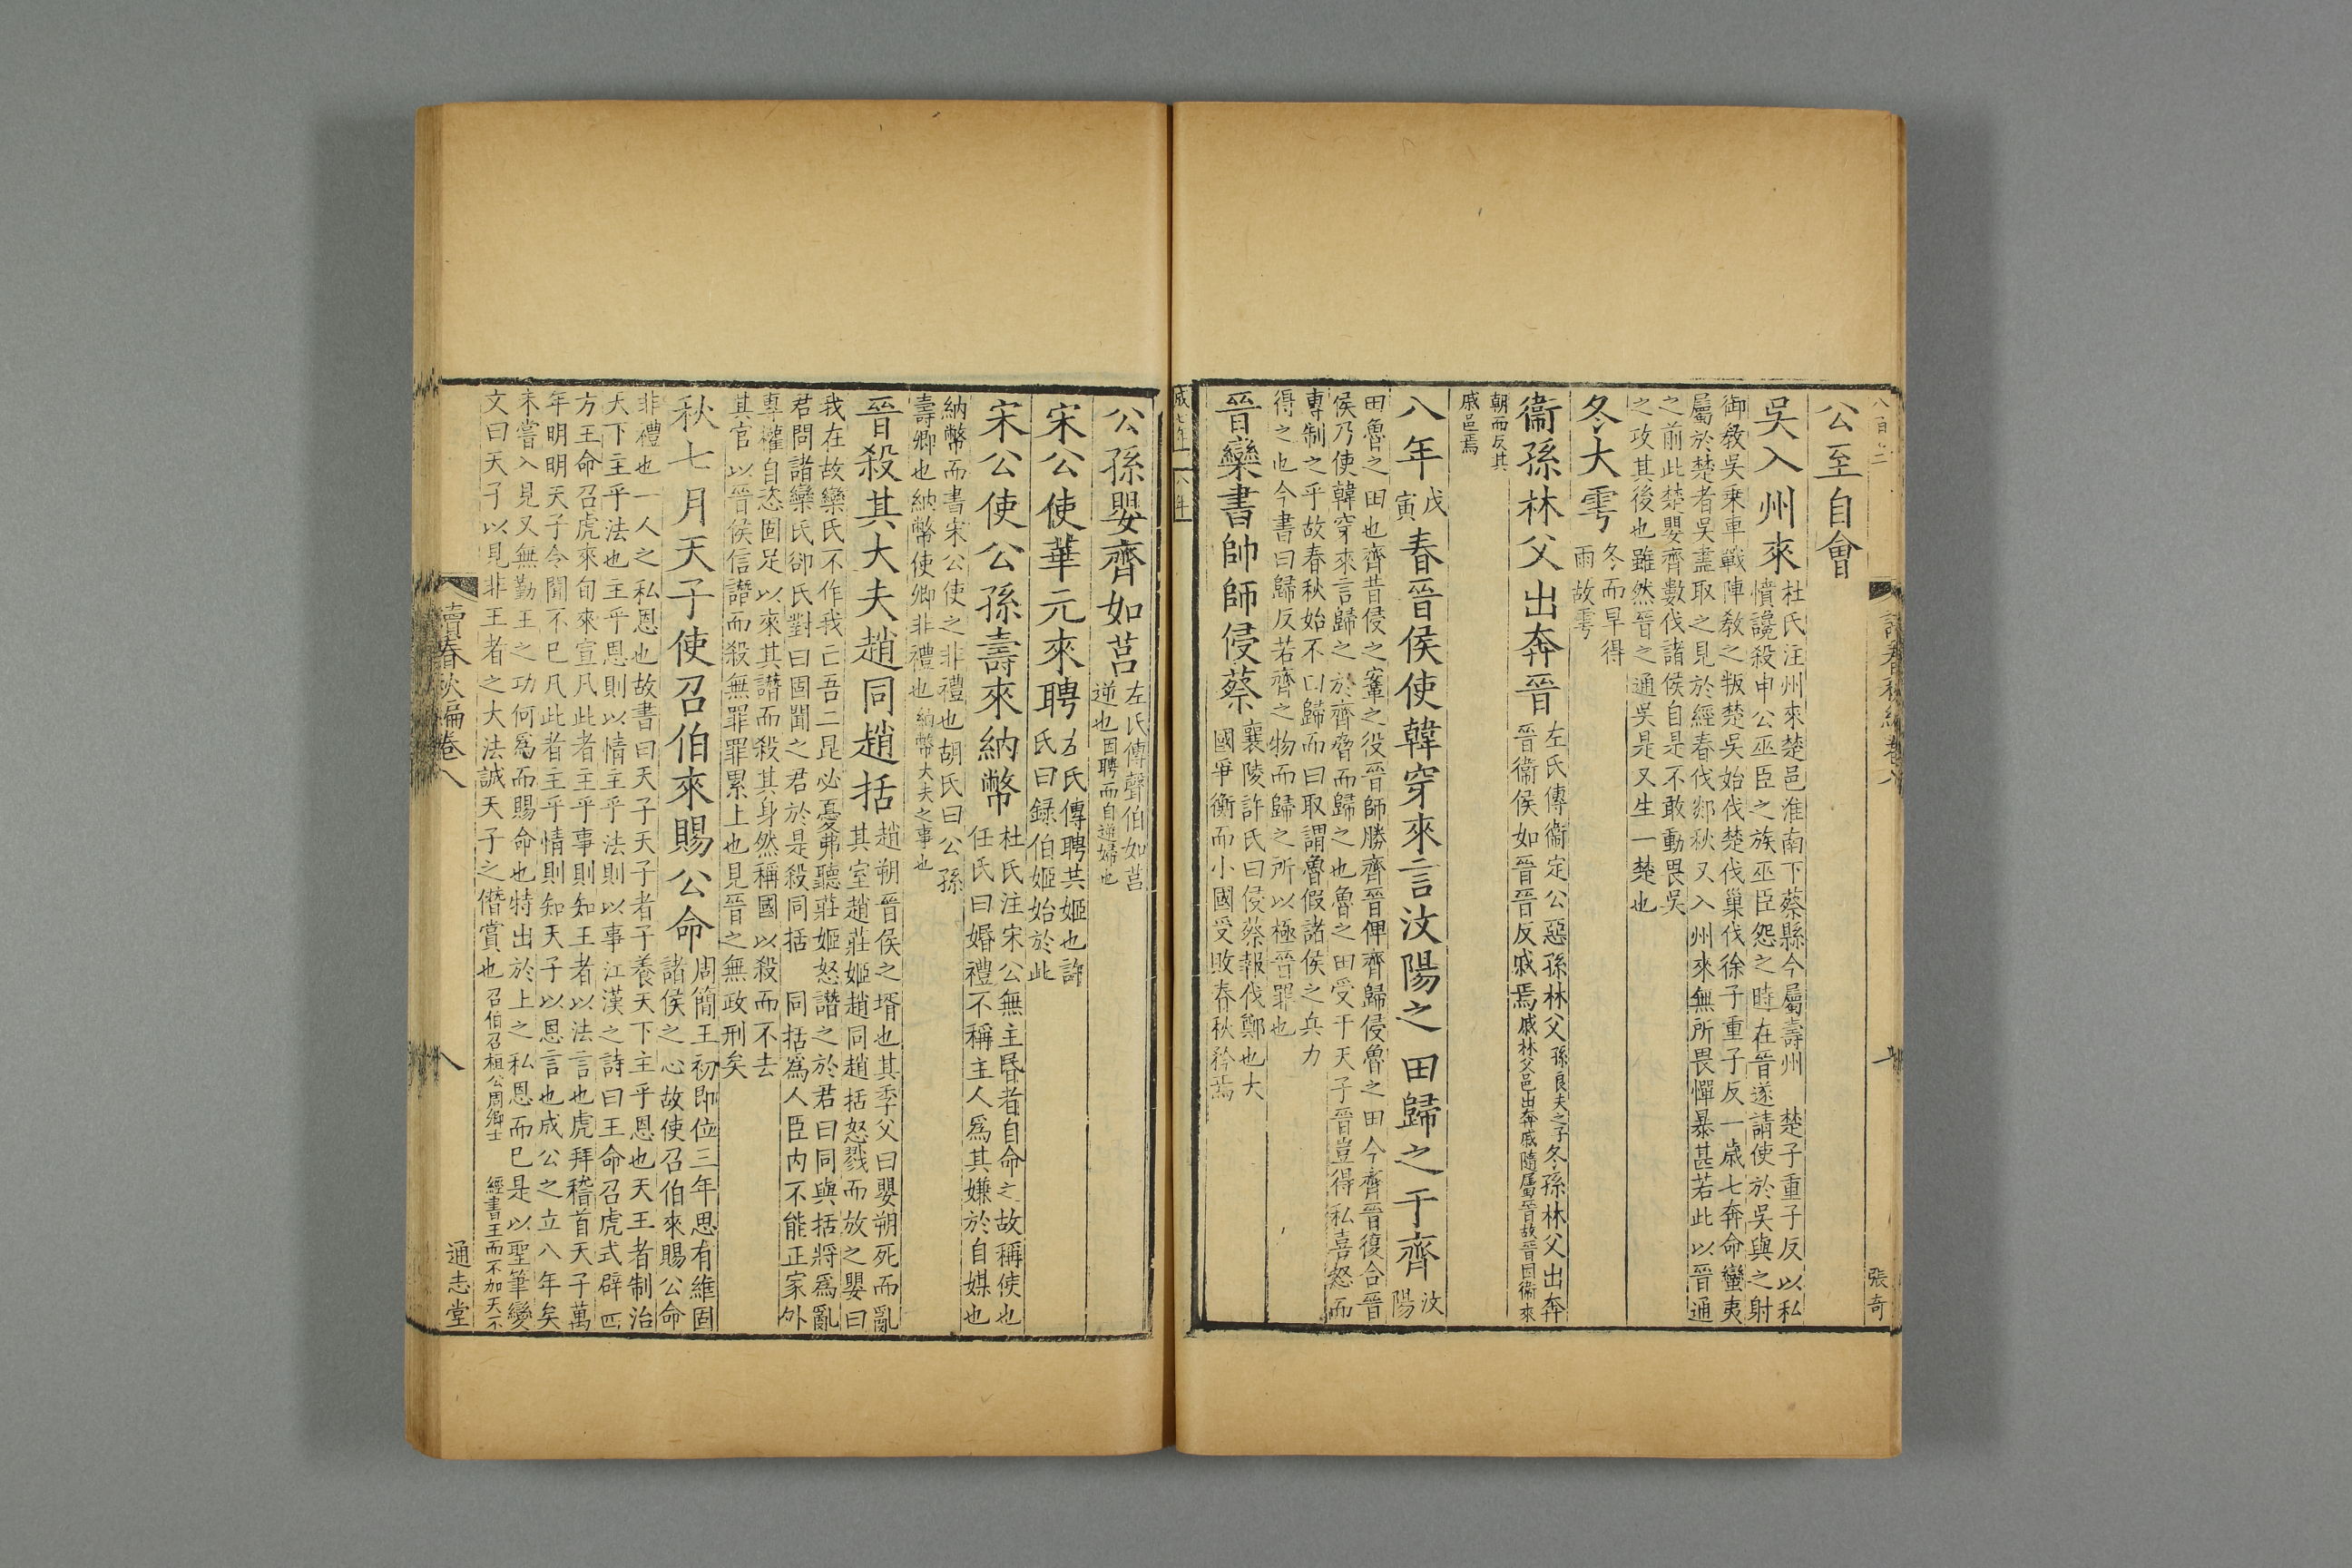 公至自會
吳入州來
杜氏注州來楚邑淮南下蔡縣今屬壽州　楚子重子反以私
憤讒殺申公巫臣之族巫臣怨之時在晉遂請使於吳與之射
御敎吳乗車戰陣敎之叛楚吳始伐楚伐巢伐徐子重子反一歲七奔命蠻夷
屬於楚者吳盡取之見於經春伐郯秋又入州來無所畏憚暴甚若此以晉通
之前此楚嬰齊數伐諸侯自是不敢動畏吳
之攻其後也雖然晉之通吳是又生一楚也
冬大雩
冬而旱得
雨故雩
衞孫林父出奔晉
左氏傳衞定公惡孫林父孫良夫之子冬孫林父出奔
晉衞侯如晉晉反戚焉戚林父邑出奔戚隨屬晉故晉因衞來
朝而反其
戚邑焉
八年
戊
寅
春晉侯使韓穿來言汶陽之田歸之于齊
汶
陽
田魯之田也齊昔侵之鞌之役晉師勝齊晉俾齊歸侵魯之田今齊晉復合晉
侯乃使韓穿來言歸之於齊脅而歸之也魯之田受于天子晉豈得私喜怒而
專制之乎故春秋始不曰歸而曰取謂魯假諸侯之兵力
得之也今書曰歸反若齊之物而歸之所以極晉罪也
晉欒書帥師侵蔡
襄陵許氏曰侵蔡報伐鄭也大
國爭衡而小國受敗春秋矜焉
張奇
公孫嬰齊如莒
左氏傳聲伯如莒
逆也因聘而自逆婦也
宋公使華元來聘
左氏傳聘共姬也許
氏曰録伯姬始於此
宋公使公孫壽來納幣
杜氏注宋公無主昬者自命之故稱使也
任氏曰婚禮不稱主人爲其嫌於自媒也
納幣而書宋公使之非禮也胡氏曰公孫
壽卿也納幣使卿非禮也納幣大夫之事也
晉殺其大夫趙同趙括
趙朔晉侯之壻也其季父曰嬰朔死而亂
其室趙莊姬趙同趙括怒戮而放之嬰曰
我在故欒氏不作我亡吾二昆必憂弗聽莊姬怒譖之於君曰同與括將爲亂
君問諸欒氏郤氏對曰固聞之君於是殺同括　同括爲人臣内不能正家外
專權自恣固足以來其譖而殺其身然稱國以殺而不去
其官以晉侯信譖而殺無罪罪累上也見晉之無政刑矣
秋七月天子使召伯來賜公命
周簡王初即位三年思有維固
諸侯之心故使召伯來賜公命
非禮也一人之私恩也故書曰天子天子者子養天下主乎恩也天王者制治
天下主乎法也主乎恩則以情主乎法則以事江漢之詩曰王命召虎式辟四
方王命召虎來旬來宣凡此者主乎事則知王者以法言也虎拜稽首天子萬
年明明天子令聞不已凡此者主乎情則知天子以恩言也成公之立八年矣
未嘗入見又無勤王之功何爲而賜命也特出於上之私恩而已是以聖筆變
文曰天子以見非王者之大法誠天子之僭賞也召伯召桓公周卿士　經書王而不加天不
讀春秋編卷八
八
通志堂